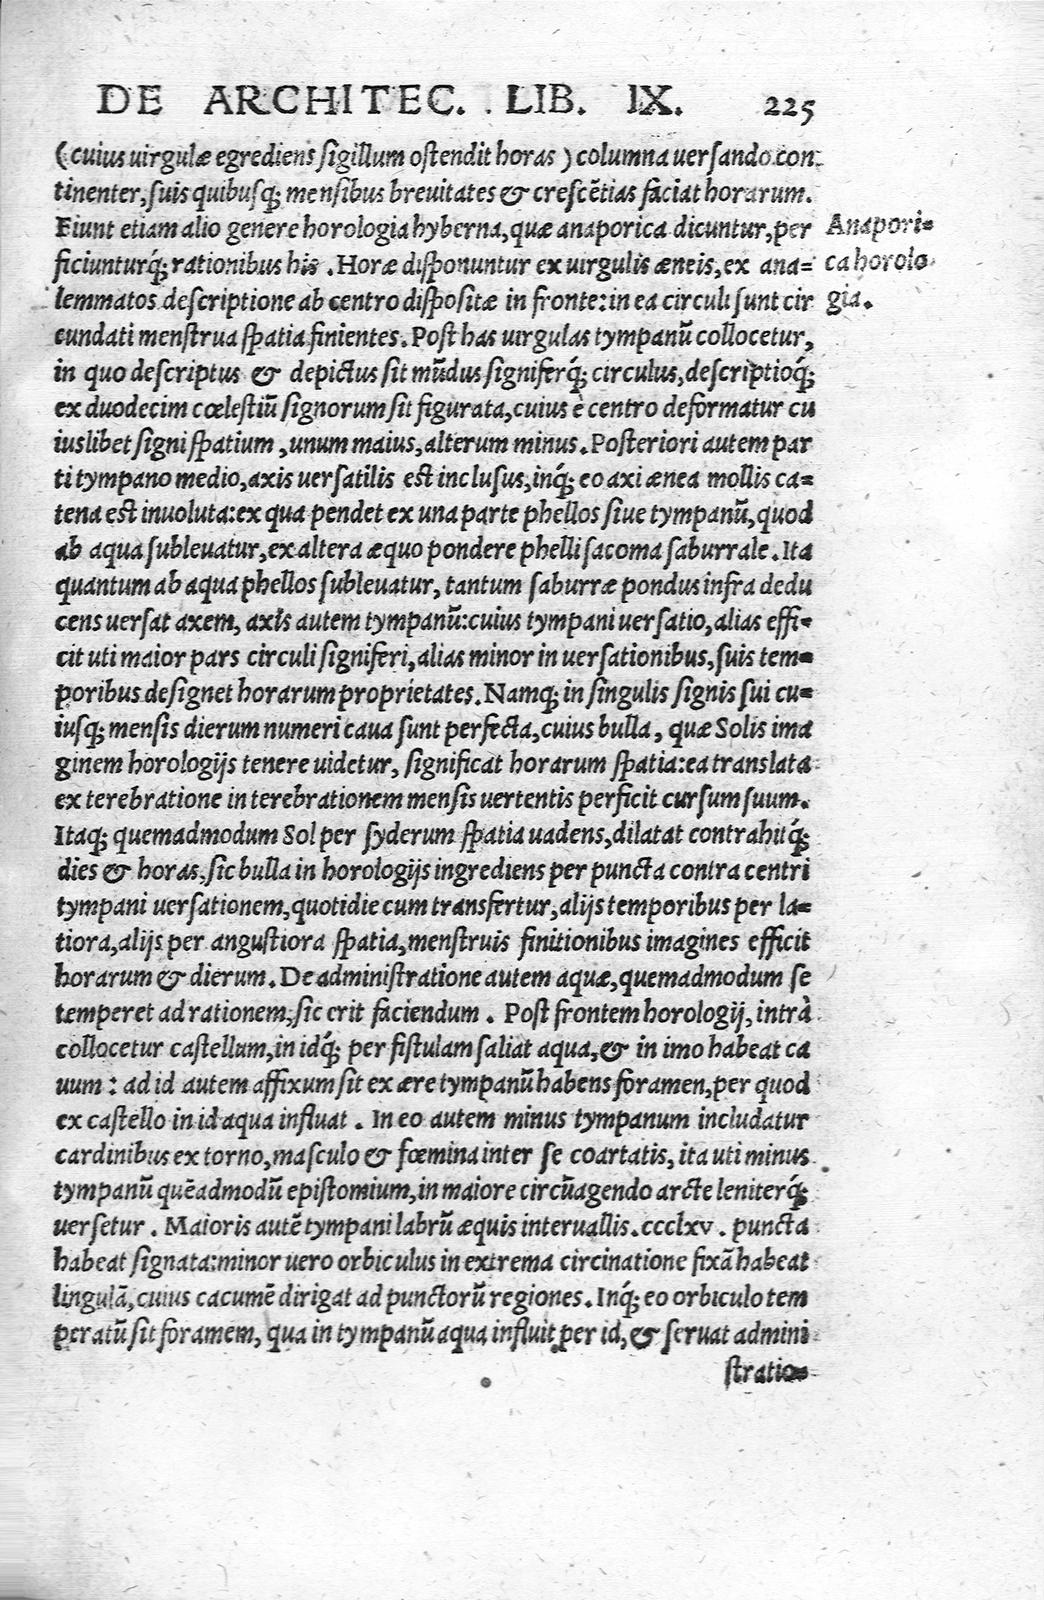 DE ARCHITEC. LIB. IX. 225
(cuius uirgulæ egrediens sigillum ostendit horas) columna uersando con-
tinenter, suis quibusq; mensibus breuitates & crescẽtias faciat horarum.
Fiunt etiam alio genere horologia hyberna, quæ anaporica dicuntur, per
ficiunturq́; rationibus his. Horæ disponuntur ex uirgulis æneis, ex ana=
lemmatos descriptione ab centro dispositæ in fronte: in ea circuli sunt cir
cundati menstrua spatia finientes. Post has uirgulas tympanũ collocetur,
in quo descriptus & depictus sit mũdus signiferq́; circulus, descriptioq́;
ex duodecim cœlestiũ signorum sit figurata, cuius è centro deformatur cu
iuslibet signi spatium, unum maius, alterum minus. Posteriori autem par
ti tympano medio, axis uersatilis est inclusus, inq́; eo axi ænea mollis ca=
tena est inuoluta: ex qua pendet ex una parte phellos siue tympanũ, quod
ab aqua subleuatur, ex altera æquo pondere phelli sacoma saburrale. Ita
quantum ab aqua phellos subleuatur, tantum saburræ pondus infra dedu
cens uersat axem, axis autem tympanũ: cuius tympani uersatio, alias effi=
cit uti maior pars circuli signiferi, alias minor in uersationibus, suis tem=
poribus designet horarum proprietates. Namq; in singulis signis sui cu=
iusq; mensis dierum numeri caua sunt perfecta, cuius bulla, quæ Solis ima
ginem horologijs tenere uidetur, significat horarum spatia: ea translata
ex terebratione in terebrationem mensis uertentis perficit cursum suum.
Itaq; quemadmodum Sol per syderum spatia uadens, dilatat contrahitq́;
dies & horas, sic bulla in horologijs ingrediens per puncta contra centri
tympani uersationem, quotidie cum transfertur, alijs temporibus per la=
tiora, alijs per angustiora spatia, menstruis finitionibus imagines efficit
horarum & dierum. De administratione autem aquæ, quemadmodum se
temperet ad rationem, sic erit faciendum. Post frontem horologij, intrà
collocetur castellum, in idq́; per fistulam saliat aqua, & in imo habeat ca
uum: ad id autem affixum sit ex ære tympanũ habens foramen, per quod
ex castello in id aqua influat. In eo autem minus tympanum includatur
cardinibus ex torno, masculo & fœmina inter se coartatis, ita uti minus
tympanũ quẽadmodũ epistomium, in maiore circũagendo arcte leniterq́;
uersetur. Maioris autẽ tympani labrũ æquis interuallis. ccclxv. puncta
habeat signata: minor uero orbiculus in extrema circinatione fixã habeat
lingulã, cuius cacumẽ dirigat ad punctorũ regiones. Inq́; eo orbiculo tem
peratũ sit foramem, qua in tympanũ aqua influit per id, & seruat admini
stratio=
Anapori=
ca horolo
gia.